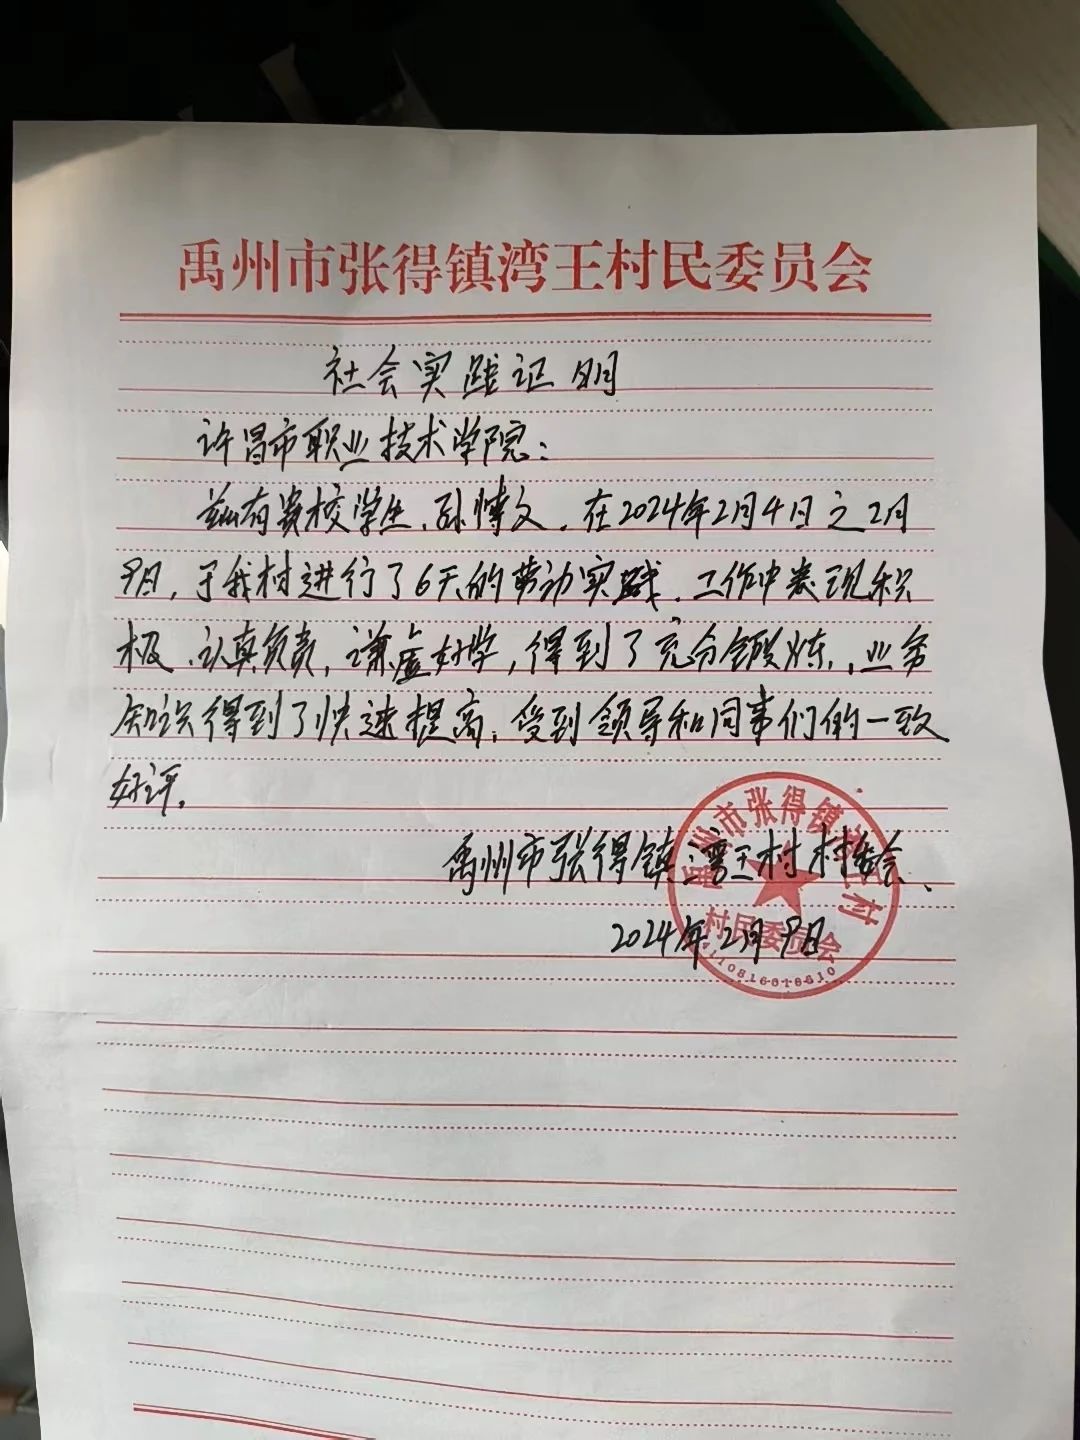 禹州市张得镇湾王村民委员会
社会实践证明
许昌市职业技术学院：
兹有贵校学生、孙博文，在2024年2月4日之2月
9日，于我村进行了6天的劳动实践、工作中表现积
极、认真负责，谦虚好学，得到了充分锻炼，业务
知识得到了快速提高，受到领导和同事们的一致
好评。
禹州市张得镇湾王村村委会、
2024年2月9日
禹州市张得镇湾王村
村民委员会